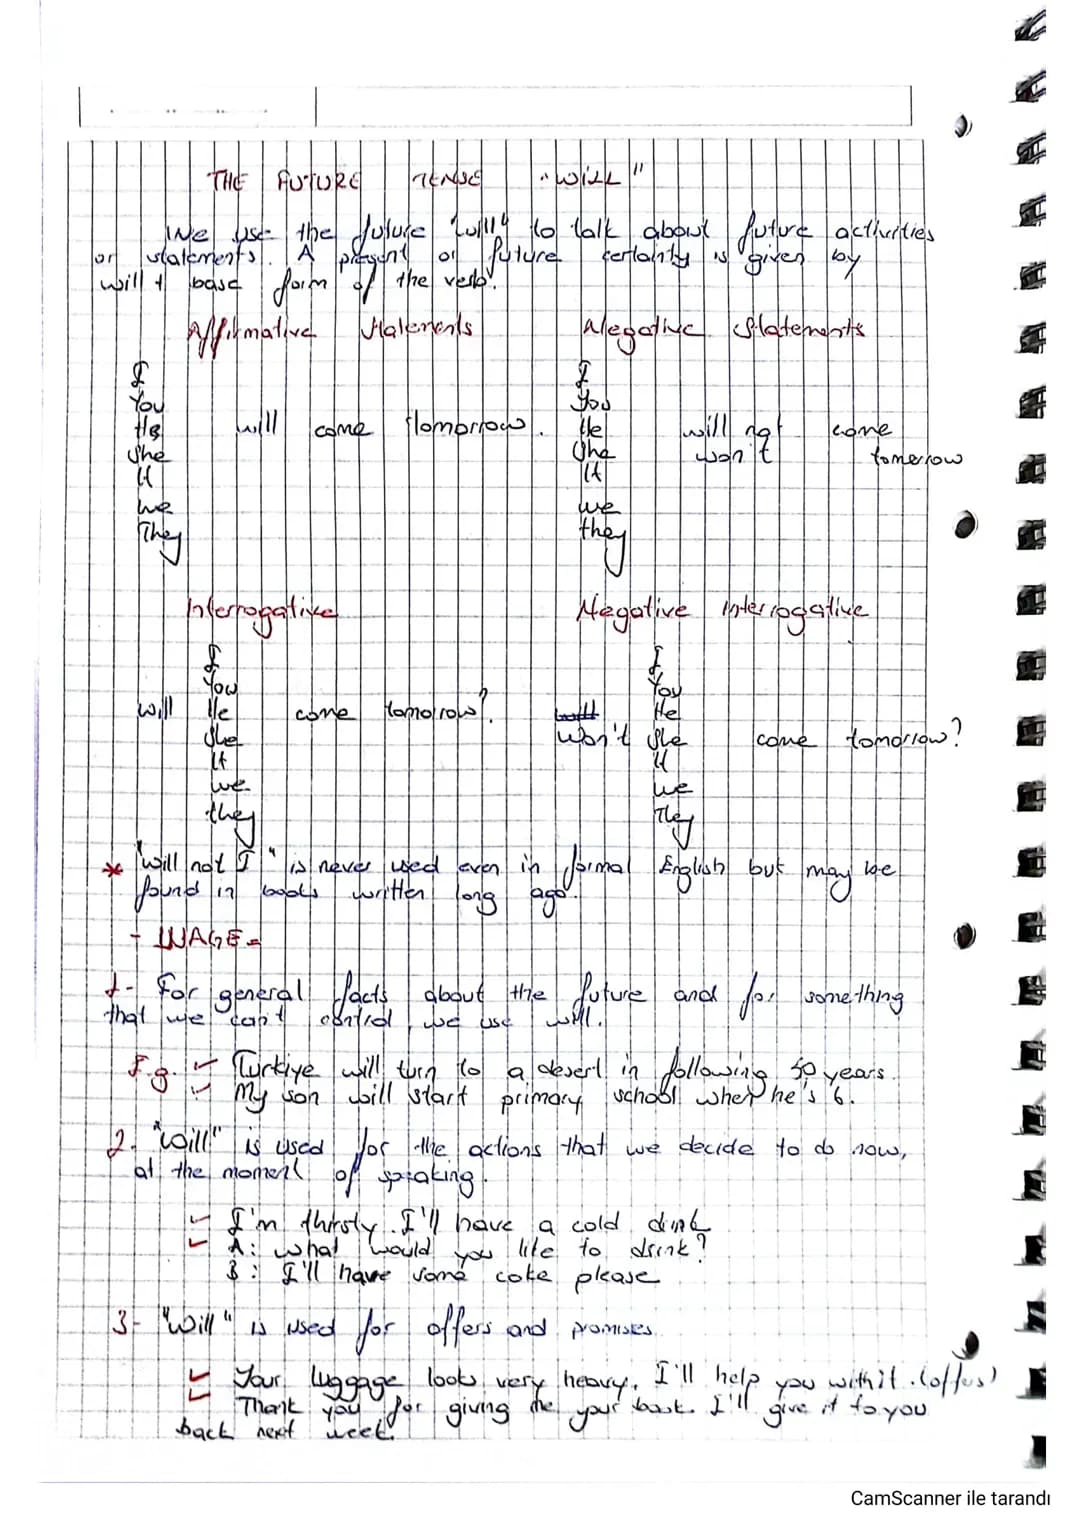 THE FUTURE TENSE "WILL"
We use the future "will" to talk about future activities
or statements. A present or future certainty is given by
will + base form of the verb.
Affirmative Statements
Negative Statements
I
You
He
She
It
we
They
will come tomorrow.
I
You
He
She
It
we
they
will not come
won't tomerrow
Interrogative
Negative Interrogative
will
I
You
He
She
It
we
they
come tomorrow?
won't
I
You
He
She
It
we
They
come tomorrow?
* "will not I" is never used even in formal English but may be
found in books written long ago.
- USAGE =
1- For general facts about the future and for something
that we can't control, we use will.
E.g. Türkiye will turn to a desert in following 50 years.
My son will start primary school when he's 6.
2. "will" is used for the actions that we decide to do now,
at the moment of speaking.
I'm thirsty. I'll have a cold drink
A: what would you like to drink?
B: I'll have some coke please
3- "will" is used for offers and promises.
Your luggage looks very heavy. I'll help you with it. (offers)
Thank you for giving me your book. I'll give it to you
back next week.
CamScanner ile tarandı